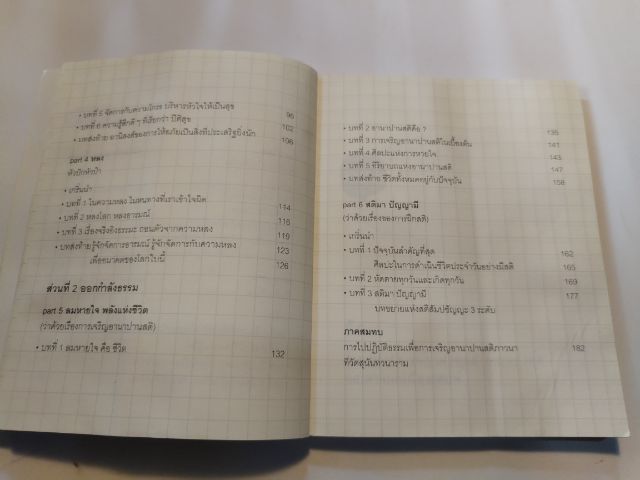 • บทที่ 5 จัดการกับความโกรธ บริหารหัวใจให้เป็นสุข 96
• บทที่ 6 ความรู้สึกดี ๆ ที่เรียกว่า ปีติสุข 102
• บทส่งท้าย อานิสงส์ของการให้อภัยเป็นสิ่งที่ประเสริฐยิ่งนัก 106
part 4 หลง
หัวปักหัวปำ
• เกริ่นนำ
• บทที่ 1 ในความหลง ในหนทางที่เราเข้าใจผิด 114
• บทที่ 2 หลงโลก หลงอารมณ์ 116
• บทที่ 3 เรื่องจริงอิงธรรมะ ถอนตัวจากความหลง 119
• บทส่งท้าย รู้จักจัดการอารมณ์ รู้จักจัดการกับความหลง 123
เพื่ออนาคตของโลกใบนี้ 126
ส่วนที่ 2 ออกกำลังธรรม
part 5 ลมหายใจ พลังแห่งชีวิต
(ว่าด้วยเรื่องการเจริญอานาปานสติ)
• บทที่ 1 ลมหายใจ คือ ชีวิต 132
• บทที่ 2 อานาปานสติคือ ? 135
• บทที่ 3 การเจริญอานาปานสติในเบื้องต้น 141
• บทที่ 4 ศิลปะแห่งการหายใจ 143
• บทที่ 5 ที่ริยาบถแห่งอานาปานสติ 147
• บทส่งท้าย ชีวิตทั้งหมดอยู่กับปัจจุบัน 158
part 6 สติมา ปัญญามี
(ว่าด้วยเรื่องของการฝึกสติ)
• เกริ่นนำ
• บทที่ 1 ปัจจุบันสำคัญที่สุด 162
ศิลปะในการดำเนินชีวิตประจำวันอย่างมีสติ 165
• บทที่ 2 หัดตายทุกวันและเกิดทุกวัน 169
• บทที่ 3 สติมา ปัญญามี 177
บทขยายแห่งสติสัมปชัญญะ 3 ระดับ
ภาคสมทบ
การไปปฏิบัติธรรมเพื่อการเจริญอานาปานสติภาวนา 182
ที่วัดสุนันทวนาราม